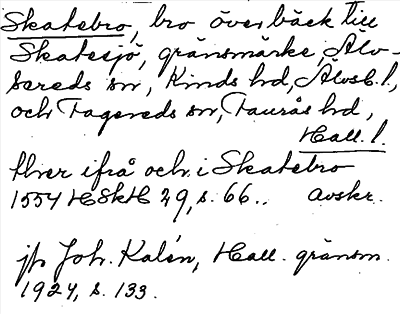 Skatebro, bro över bäck till
Skatesjö, gränsmärke, Älv-
sereds sn, Kinds hd, Älvsb. l.,
och Fagereds sn, Faurås hd,
Hall. l.
thær ifrå och i Skatebro
1554 HSkH 29, s. 66.. Avskr.
jfr Joh. Kalén, Hall. gränsm.
1924, s. 133.